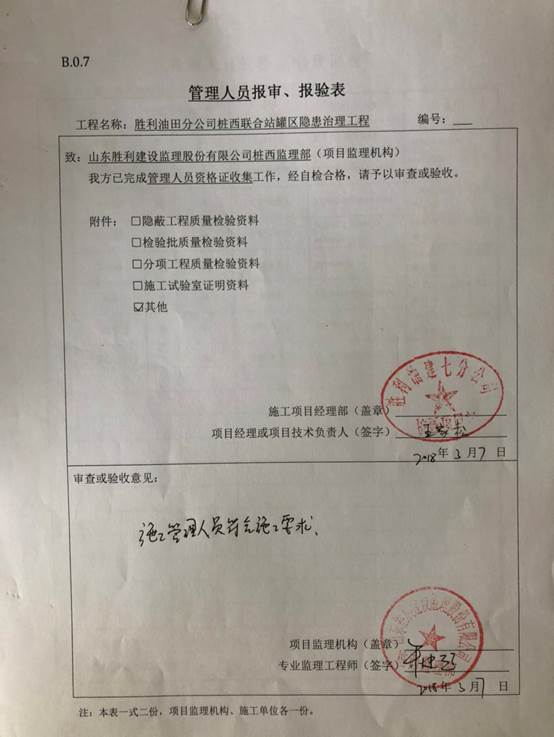 B.0.7
管理人员报审、报验表
工程名称：胜利油田分公司桩西联合站罐区隐患治理工程 编号：
致：山东胜利建设监理股份有限公司桩西监理部（项目监理机构）
我方已完成管理人员资格证收集工作，经自检合格，请予以审查或验收。
附件：□隐蔽工程质量检验资料
□检验批质量检验资料
□分项工程质量检验资料
□施工试验室证明资料
☑其他
胜利油建七分公司
施工项目经理部（盖章）
项目经理或项目技术负责人（签字）
2018年3月7日
审查或验收意见：
施工管理人员符合施工要求、
项目监理机构（盖章）
专业监理工程师（签字）
2018年3月7日
注：本表一式二份，项目监理机构、施工单位各一份。